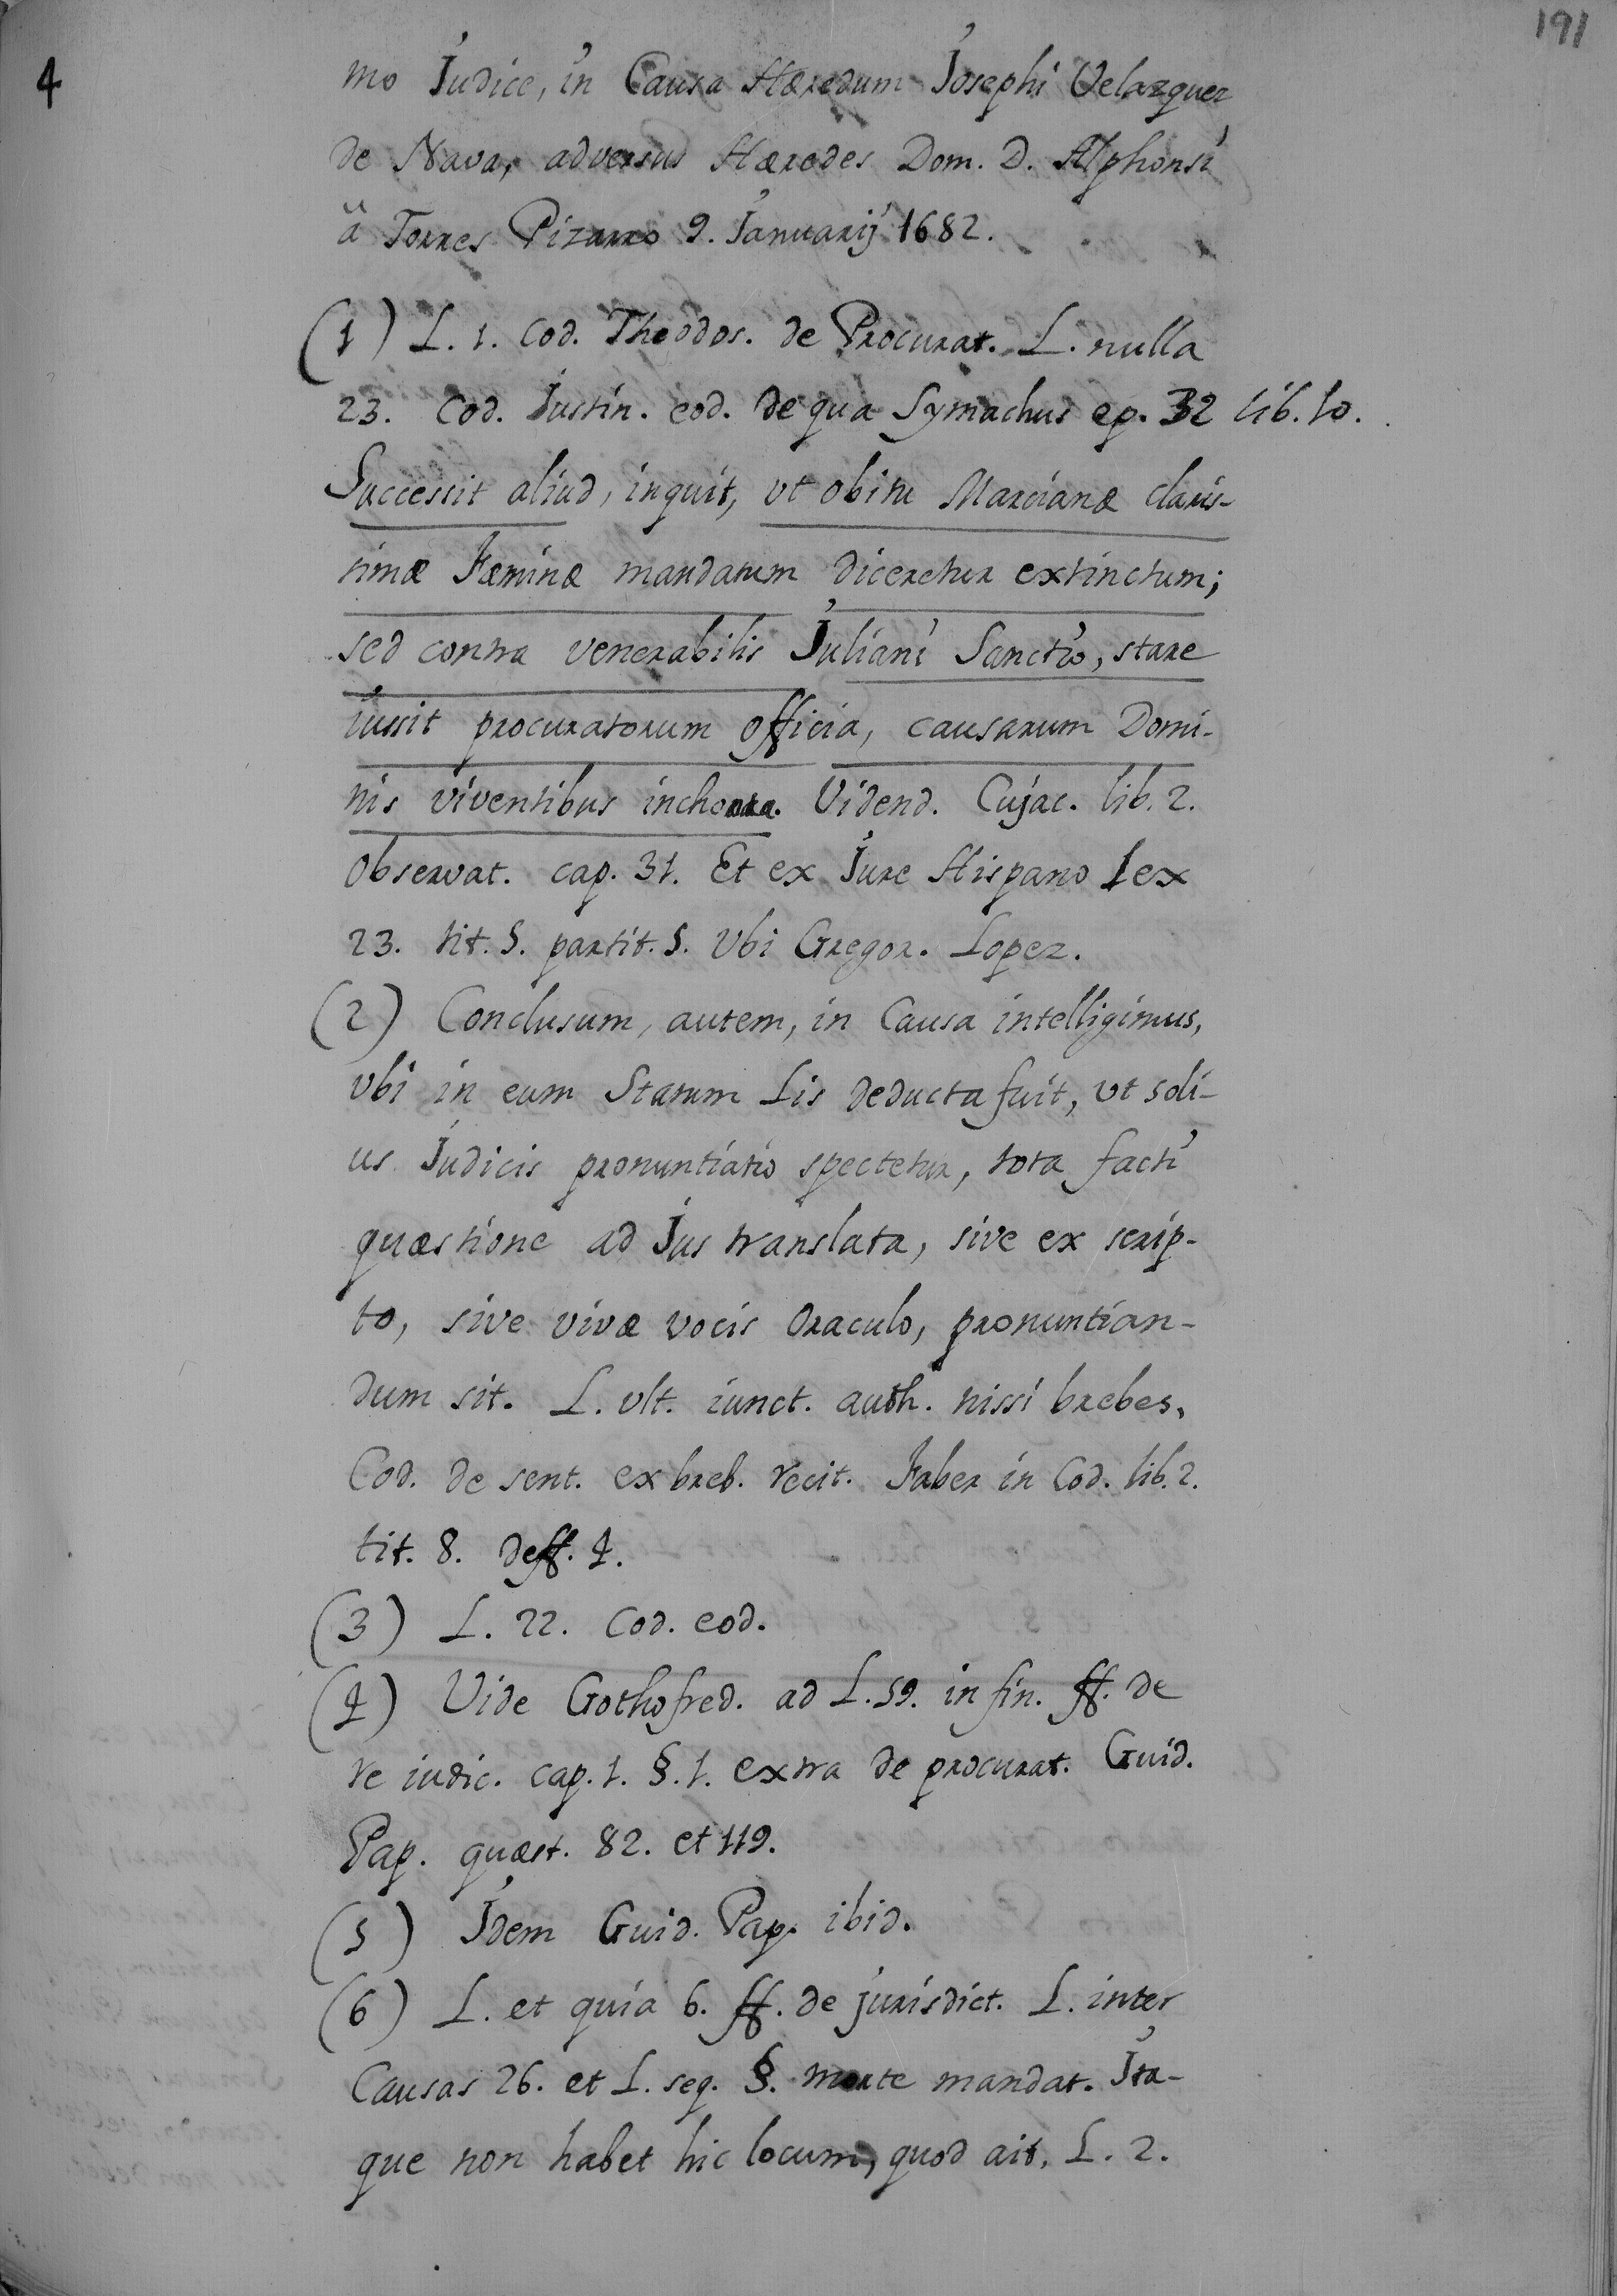 191
4
mo Judice, in Causa Hæredum Josephi Velazquez
de Nava, adversus Hæredes Dom. D. Alphonsi
â Torres Pizarro 9. Januarij 1682.
(1) L. 1. Cod. Theodos. de Procurat. L. nulla
23. Cod. Justin. eod. de qua Symachus ep. 32 lib. 10.
Successit aliud, inquit, vt obitu Marcianæ claris-
simæ Fæminæ mandatum diceretur extinctum;
sed contra venerabilis Juliani Sanctio, stare
iussit procuratorum officia, causarum Domi-
nis viventibus inchoata. Vidend. Cujac. lib. 2.
Observat. cap. 31. Et ex Jure Hispano Lex
23. tit. 5. partit. 5. Vbi Gregor. Lopez.
(2) Conclusum, autem, in Causa intelligimus,
Vbi in eum Statum Lis deducta fuit, vt soli-
us Judicis pronuntiatio spectetur, tota facti
quæstione ad Jus translata, sive ex scrip-
to, sive vivæ vocis Oraculo, pronuntian-
dum sit. L. vlt. iunct. auth. nissi brebes,
Cod. de sent. ex breb. recit. Faber in Cod. lib. 2.
tit. 8. deff. 4.
(3) L. 22. Cod. eod.
(4) Vide Gothofred. ad L. 59. in fin. ff. de
re iudic. cap. 1. §. 1. extra de procurat. Guid.
Pap. quæst. 82. et 119.
(5) Idem Guid. Pap. ibid.
(6) L. et quia 6. ff. de jurisdict. L. inter
Causas 26. et L. seq. §. morte mandat. Ita-
que non habet hic locum, quod ait, L. 2.